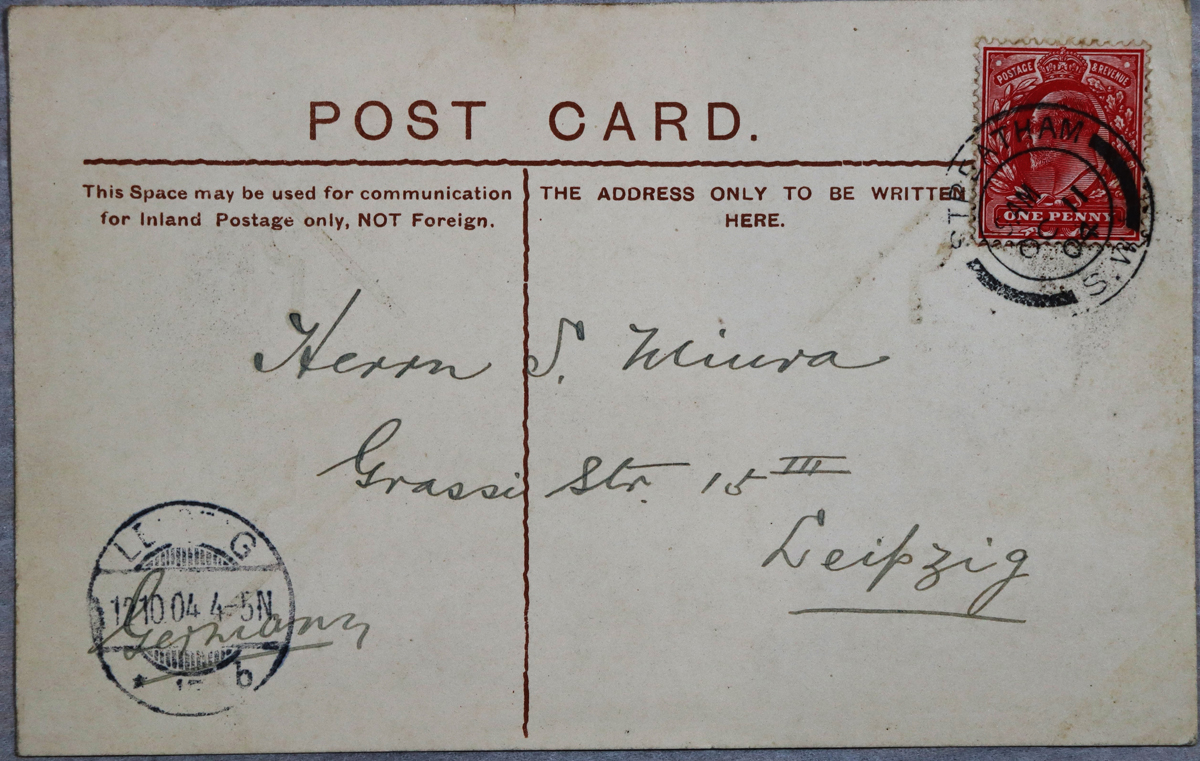 POST CARD.
POSTAGE & REVENUE
ONE PENNY
STREATHAM
S.W.
OC 11
04
This Space may be used for communication
for Inland Postage only, NOT Foreign.
THE ADDRESS ONLY TO BE WRITTEN
HERE.
Herrn S. Miura
Grassi Str. 15 III
Leipzig
Germany
12.10.04 4-5N
b